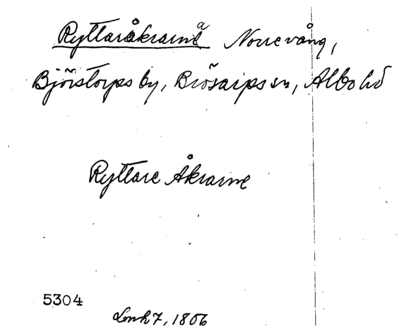 Ryttaråkrarna Norrevång,
Björstorps by, Brösarps sn, Albo hd
Ryttare Åkrarne
5304
Lmh 7, 1806